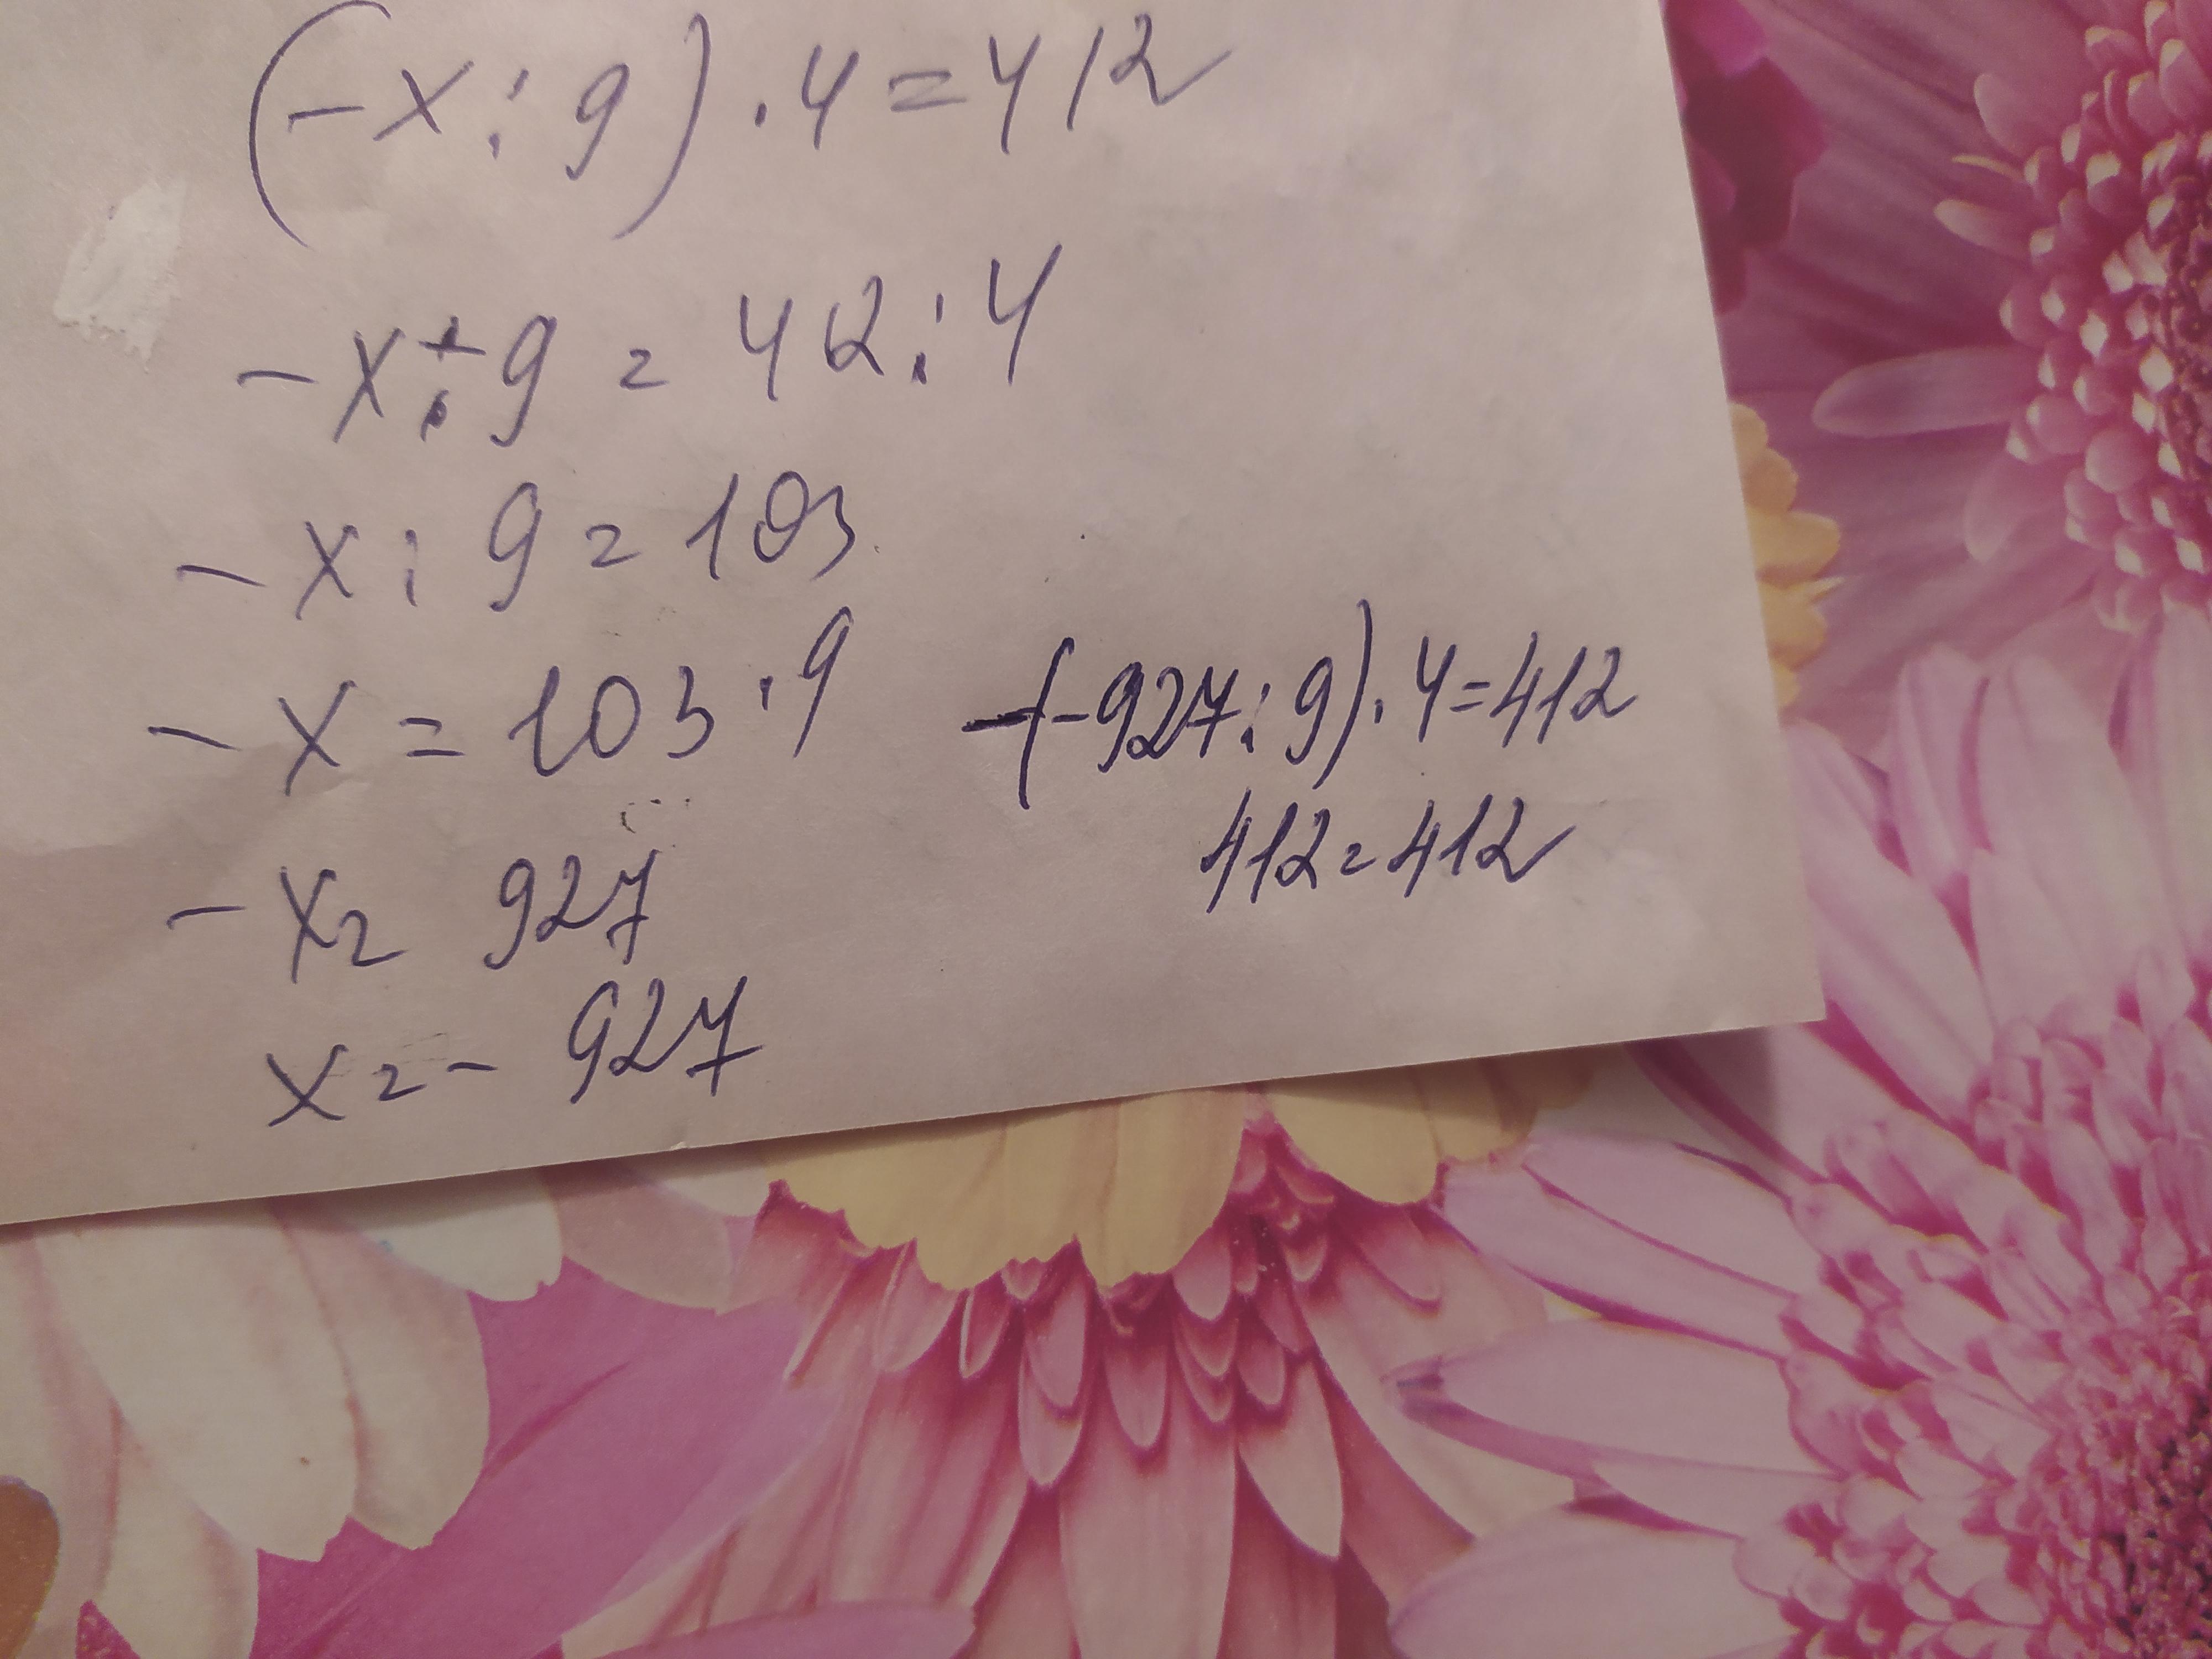 (-x : 9) · 4 = 412
-x : 9 = 412 : 4
-x : 9 = 103
-x = 103 · 9
-x = 927
x = - 927
-(-927 : 9) · 4 = 412
412 = 412